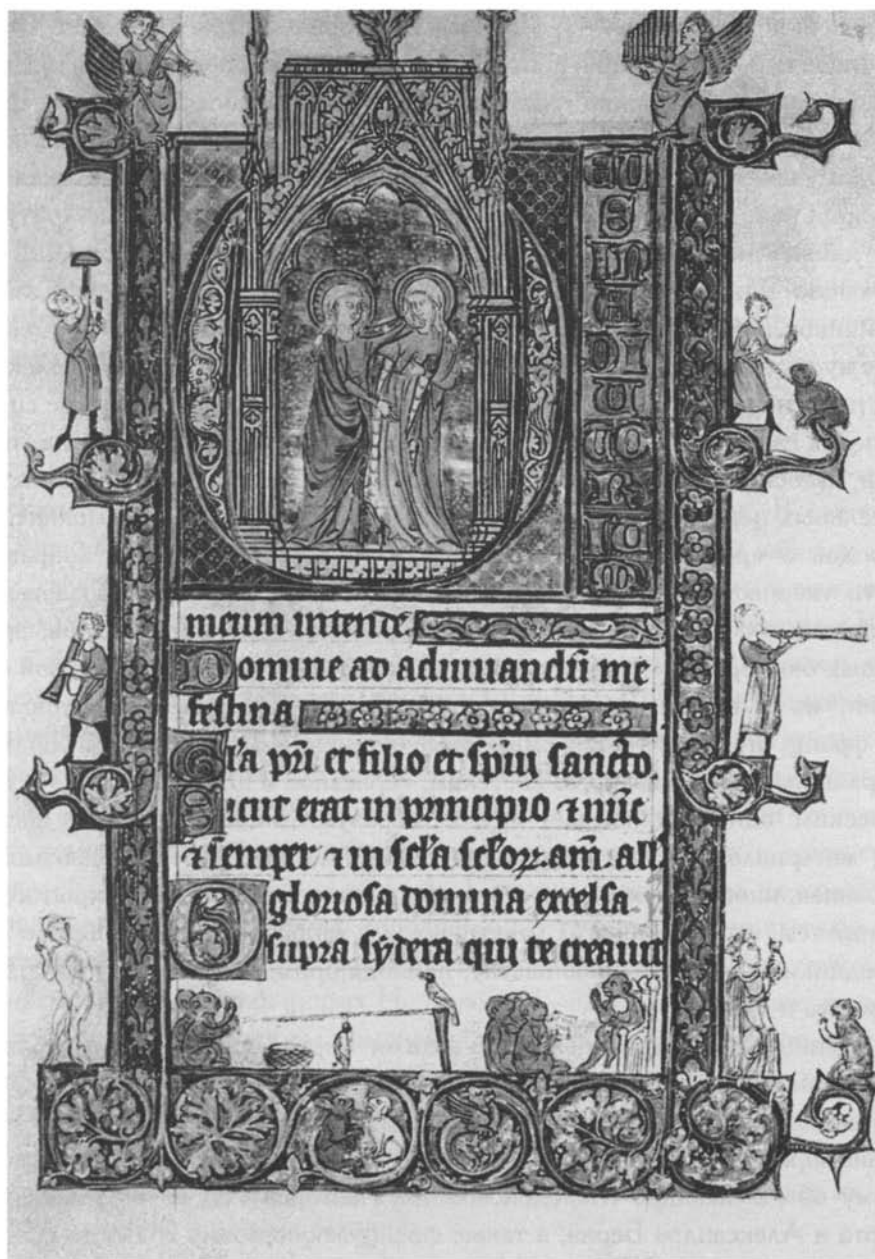 28
meum intende.
Domine ad adiuuandū me
festina
Gl'a pr̄i et filio et sp̄iu sancto.
Sicut erat in principio ⁊ nūc
⁊ semper ⁊ in sc̄la sc̄loꝝ am̄. all'
O gloriosa domina excelsa
supra sydera qui te creauit